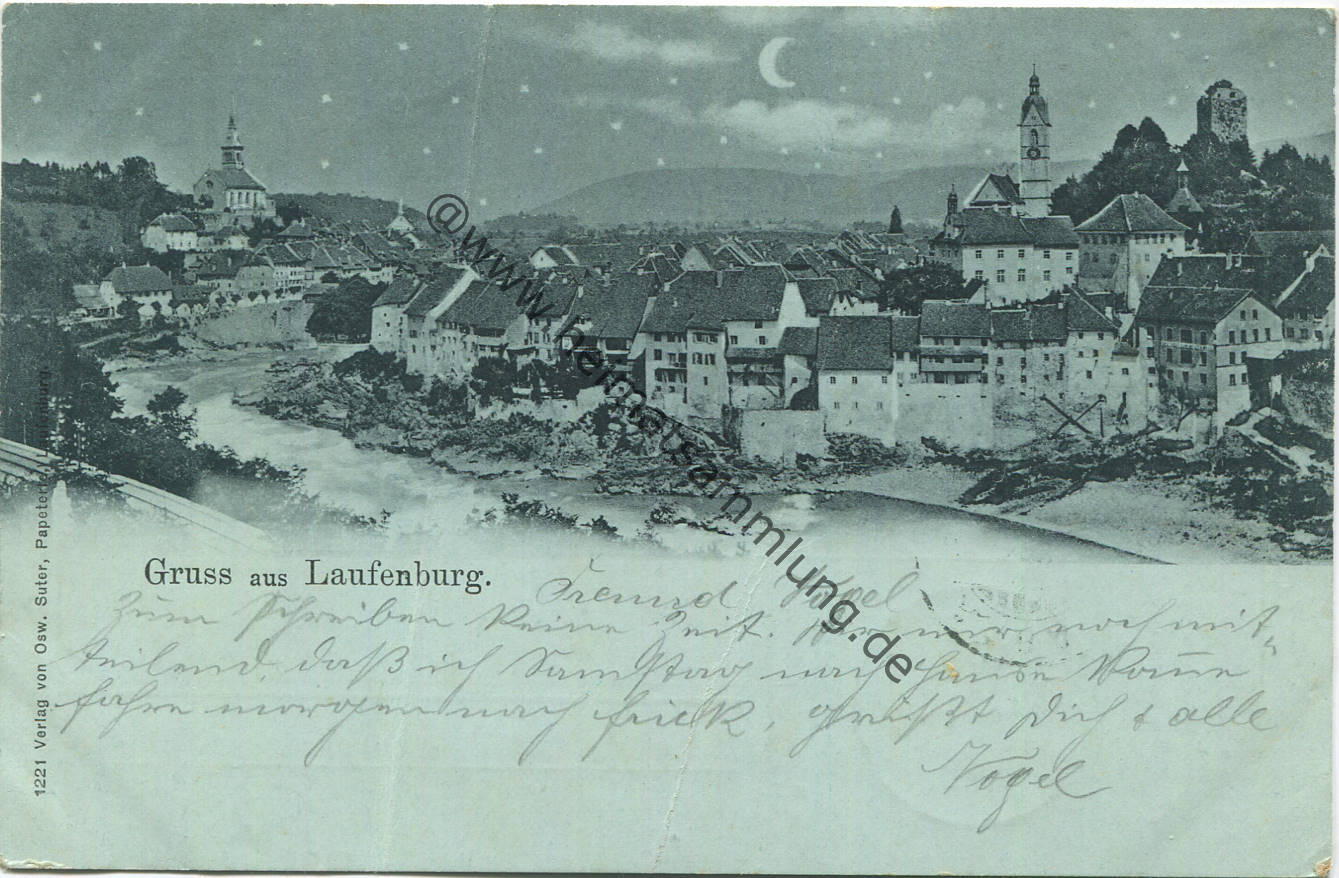 Gruss aus Laufenburg.
Freund Vogel
Zum Schreiben keine Zeit. Dir nur noch mit-
teilend, daß ich Samstag nach Hause komme
fahre morgen nach Frick, grüßt Dich & alle
Vogel
1221 Verlag von Osw. Suter, Papeterie,
@www.heimatsammlung.de